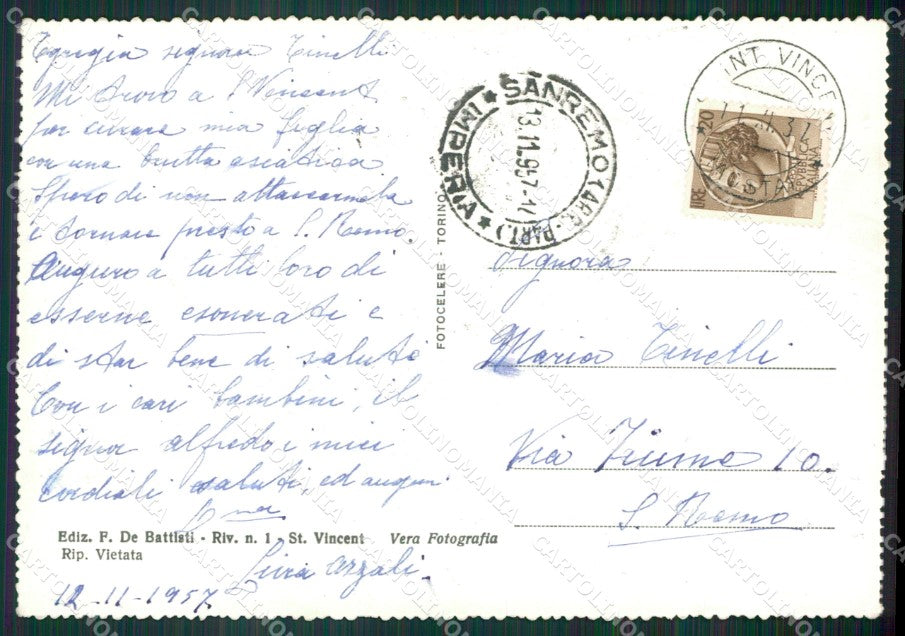 Egregia signora Tinelli
Mi trovo a S Vincent
per curare mia figlia
con una brutta asiatica
Spero di non attaccarmela
e tornare presto a S. Remo
Auguro a tutti loro di
esserne esonerati e
di star bene di salute
Con i cari bambini, il
signor alfredo i miei
cordiali saluti, ed auguri
Ediz. F. De Battisti - Riv. n. 1 - St. Vincent Vera Fotografia
Rip. Vietata
12-11-1957
FOTOCELERE - TORINO
SANREMO (ARR. PART.)
* IMPERIA *
13.11.957
INT VINCE
AOSTA
LIRE 20
Signora
Maria Tinelli
Via Fiume 10.
S. Remo
CARTOLINOMANIA